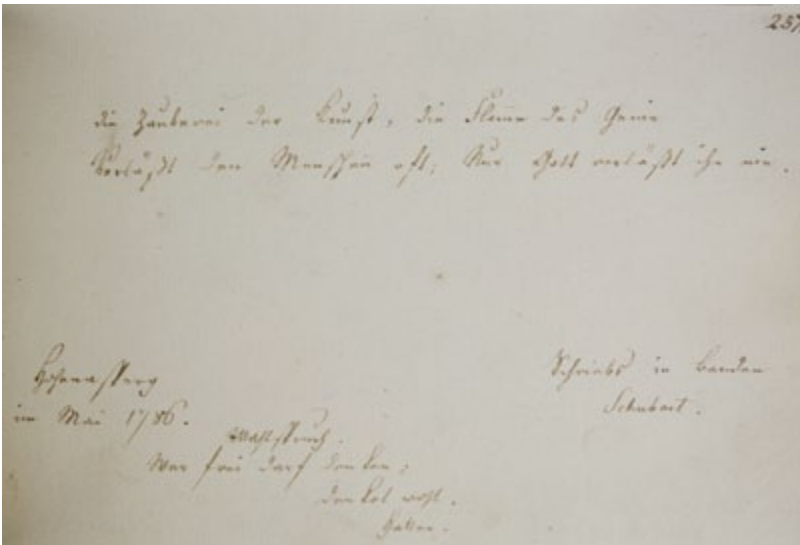 257
die Zauberei der Kunst, die Flame des Genie
Verläßt den Menschen oft; Nur Gott verläßt ihn nie.
Hohenasperg
im Mai 1786.
Schriebs in Banden
Schubart.
Wahlspruch.
Wer frei darf denken,
denket wohl.
Haller.